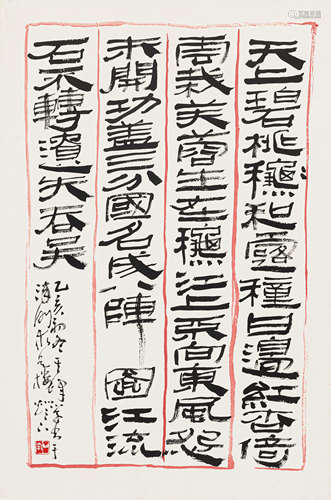 天上碧桃龝和露種日邊紅杏倚
雲栽芙蓉生在龝江上不向東風怨
未開功盖三分國名成八陣圖江流
石不轉遺失吞吴
乙亥初冬
津門